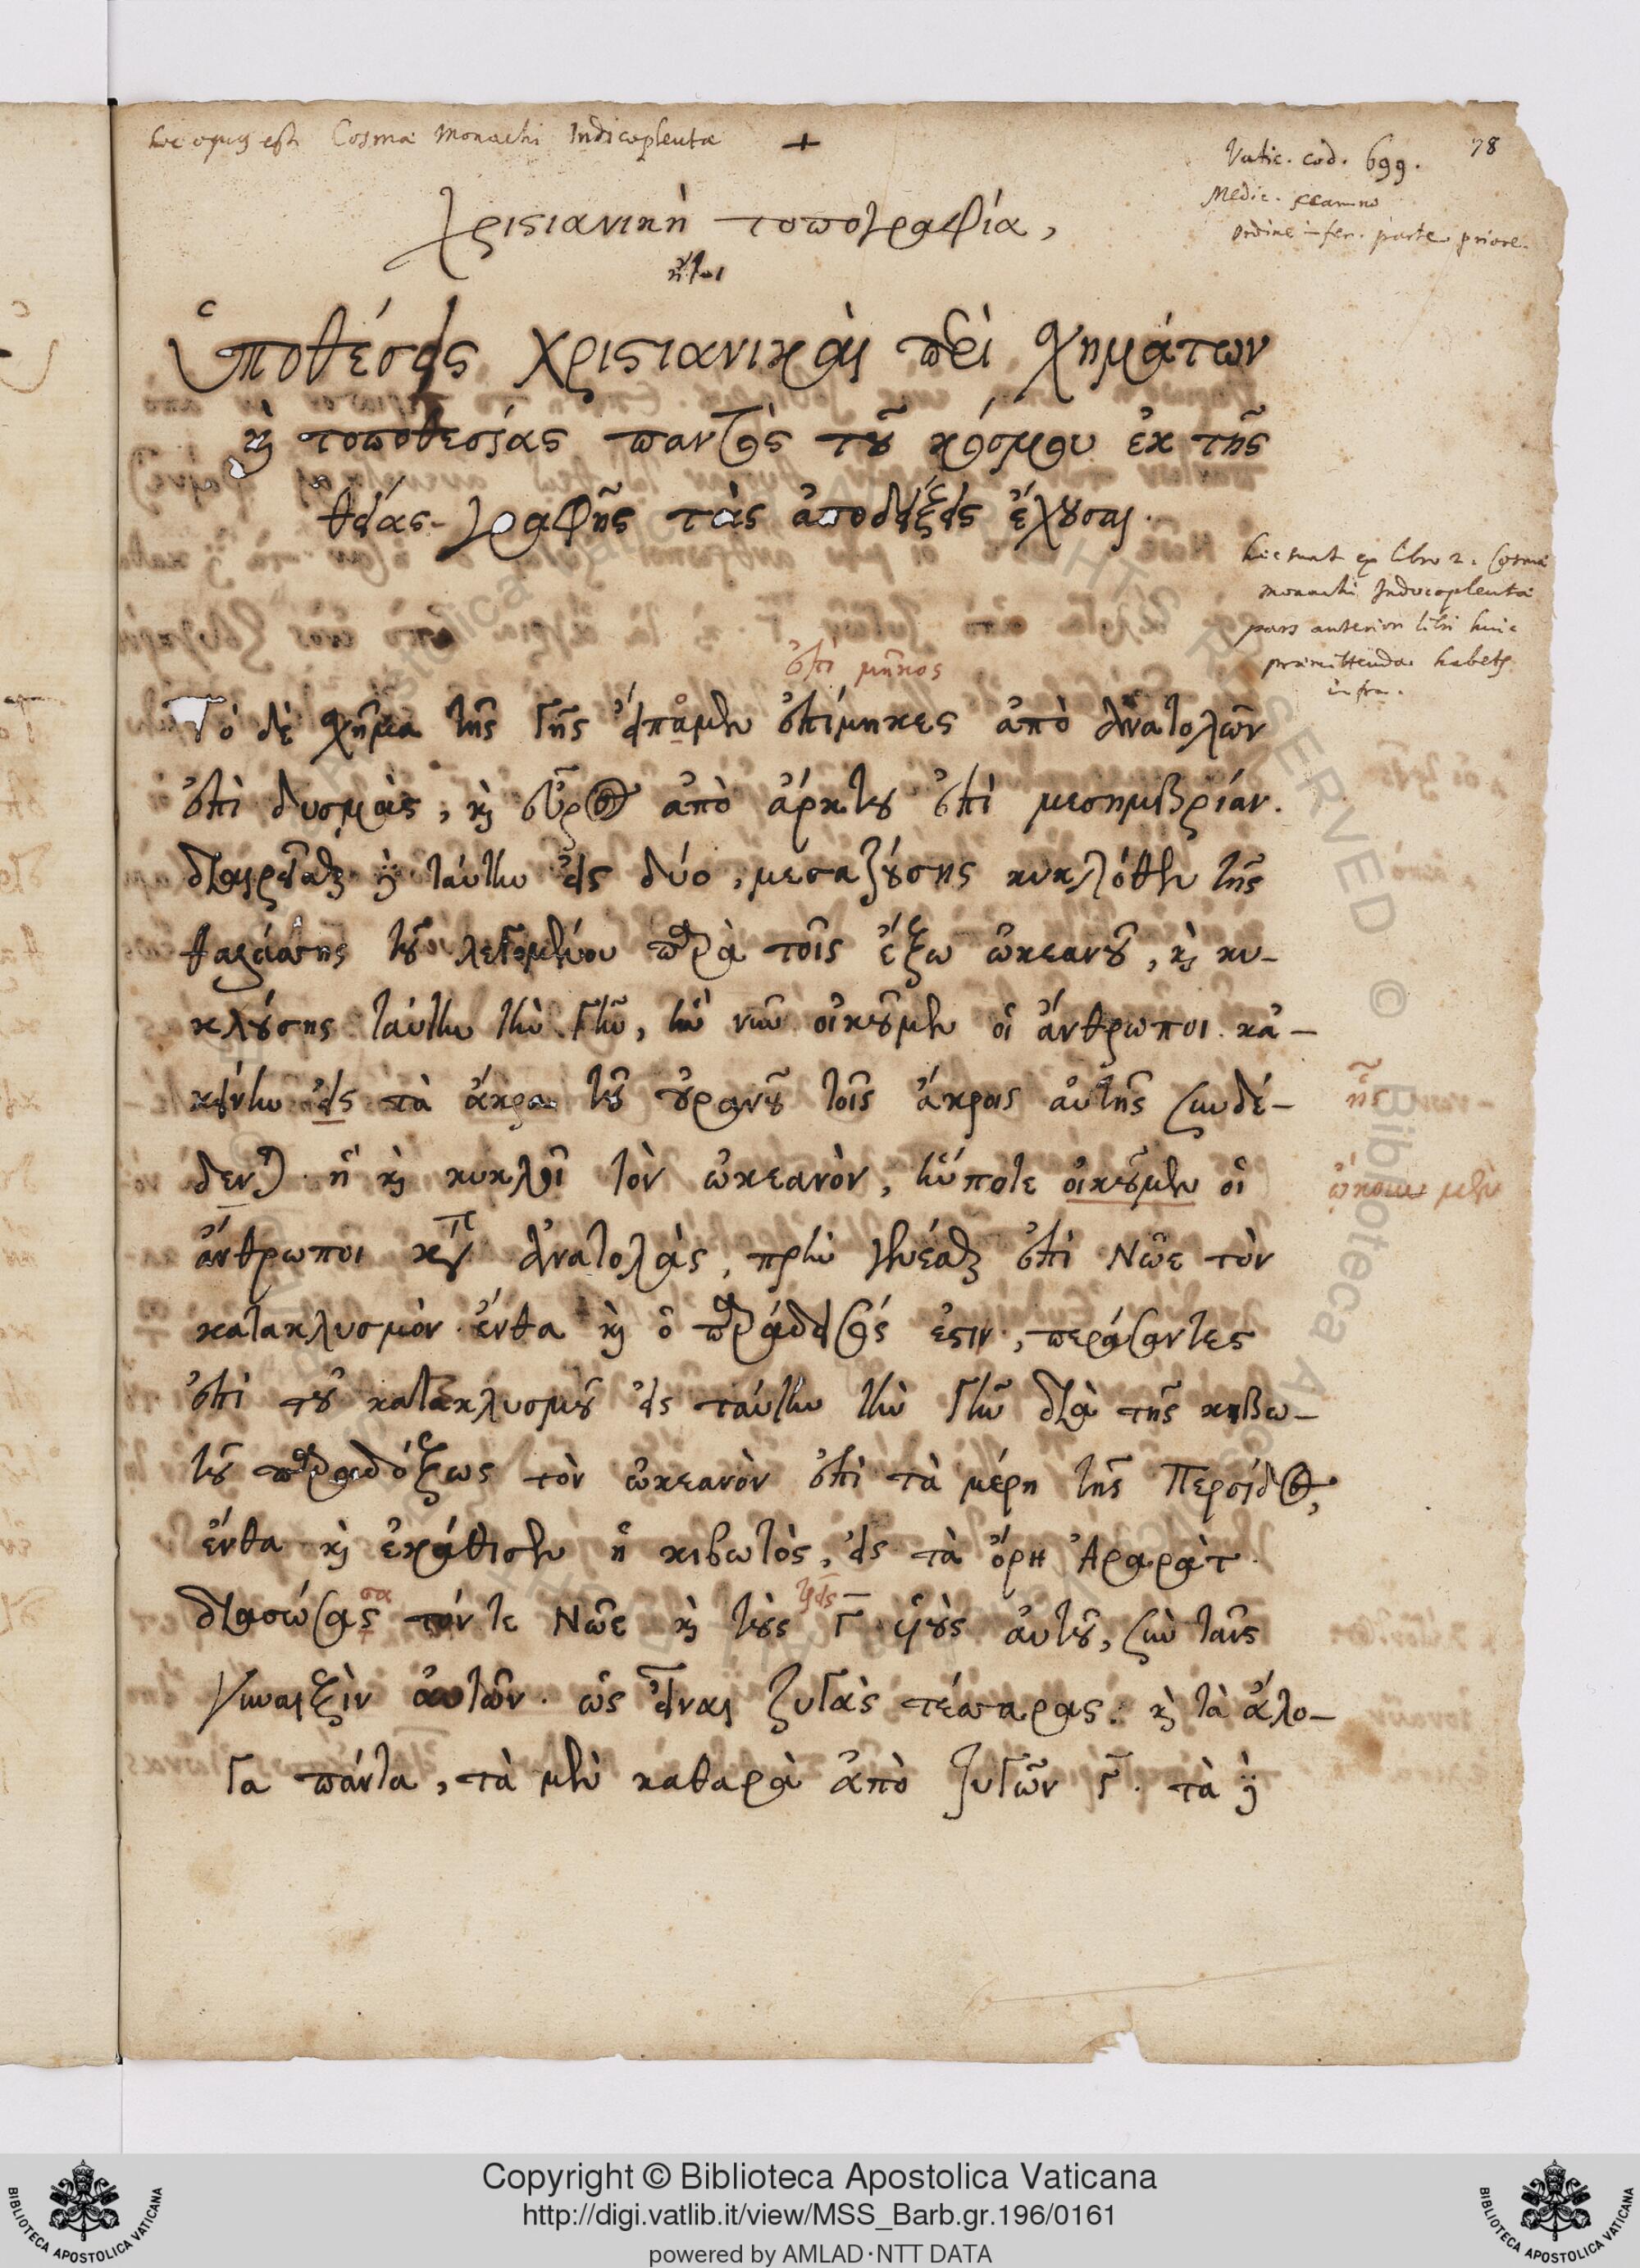 hoc opus est Cosmæ Monachi Indicopleutæ +
78
Vatic. cod. 699.
Medic.
ordine parte priore.
Χριστιανικὴ τοπογραφία,
ἤτοι
Ὑποθέσεις χριστιανικαὶ περὶ σχημάτων
καὶ τοποθεσίας παντὸς τοῦ κόσμου ἐκ τῆς
θείας γραφῆς τὰς ἀποδείξεις ἔχουσαι.
hic sunt ex libro 2. Cosmæ
monachi Indicopleutæ
pars anterior libri huic
præmittenda habetur
infra.
ἐπὶ μῆκος
Τὸ δὲ σχῆμα τῆς γῆς εἴπαμεν ἐπίμηκες ἀπὸ ἀνατολῶν
ἐπὶ δυσμὰς, καὶ εὖρος ἀπὸ ἄρκτου ἐπὶ μεσημβρίαν.
διαιρεῖσθαι δὲ ταύτην εἰς δύο, μεσαζούσης κυκλόθεν τῆς
θαλάσσης τοῦ λεγομένου παρὰ τοῖς ἔξω ὠκεανοῦ, καὶ κυ-
κλούσης ταύτην τὴν γῆν, ἣν νῦν οἰκοῦμεν οἱ ἄνθρωποι. κἀ-
κείνην εἰς τὰ ἄκρα τοῦ οὐρανοῦ τοῖς ἄκροις αὐτῆς συνδέ-
ἧς
δεται. ἣ καὶ κυκλοῖ τὸν ὠκεανὸν, ἥν ποτε οἰκοῦμεν οἱ
ᾤκουν μὲν
ἄνθρωποι κατὰ ἀνατολὰς, πρὶν γενέσθαι ἐπὶ Νῶε τὸν
κατακλυσμὸν. ἔνθα καὶ ὁ παράδεισός ἐστιν, περάσαντες
ἐπὶ τοῦ κατακλυσμοῦ εἰς ταύτην τὴν γῆν διὰ τῆς κιβω-
τοῦ παραδόξως τὸν ὠκεανὸν ἐπὶ τὰ μέρη τῆς Περσίδος,
ἔνθα καὶ ἐκάθισεν ἡ κιβωτὸς, εἰς τὰ ὄρη Ἀραρὰτ.
σα τρεῖς
διασώσας τόν τε Νῶε καὶ τοὺς γ̅ υἱοὺς αὐτοῦ, σὺν ταῖς
γυναιξὶν αὐτῶν. ὡς εἶναι ζυγὰς τέσσαρας. καὶ τὰ ἄλο-
γα πάντα, τὰ μὲν καθαρὰ ἀπὸ ζυγῶν γ̅. τὰ δὲ
Copyright © Biblioteca Apostolica Vaticana
http://digi.vatlib.it/view/MSS_Barb.gr.196/0161
powered by AMLAD·NTT DATA
BIBLIOTECA APOSTOLICA VATICANA
BIBLIOTECA APOSTOLICA VATICANA